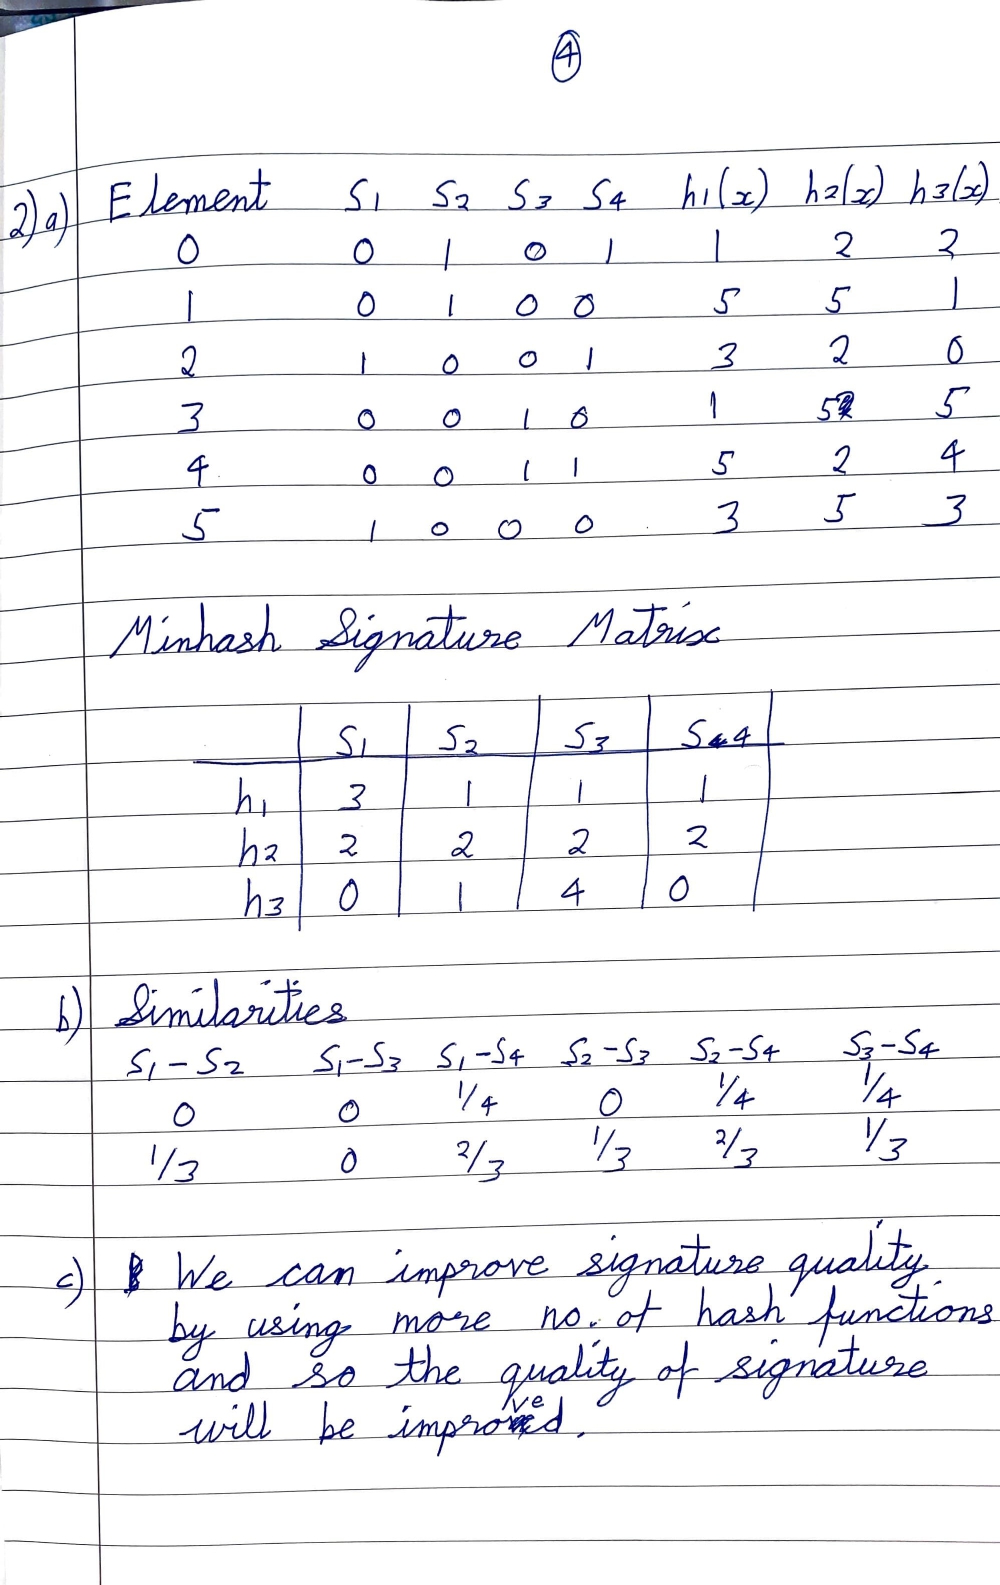 4
2) a) Element S1 S2 S3 S4 h1(x) h2(x) h3(x)
0 0 1 0 1 1 2 2
1 0 1 0 0 5 5 1
2 1 0 0 1 3 2 0
3 0 0 1 0 1 5 5
4 0 0 1 1 5 2 4
5 1 0 0 0 3 5 3
Minhash Signature Matrix
S1 S2 S3 S4
h1 3 1 1 1
h2 2 2 2 2
h3 0 1 4 0
b) Similarities
S1-S2 S1-S3 S1-S4 S2-S3 S2-S4 S3-S4
0 0 1/4 0 1/4 1/4
1/3 0 2/3 1/3 2/3 1/3
c) We can improve signature quality
by using more no. of hash functions
and so the quality of signature
will be improved.